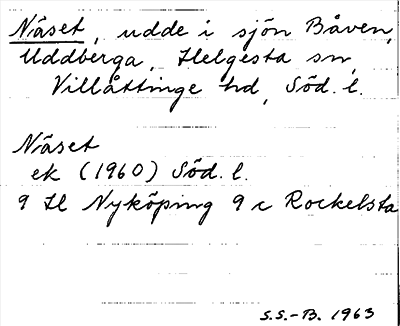 Näset, udde i sjön Båven,
Uddberga, Helgesta sn,
Villåttinge hd, Söd. l.
Näset
ek (1960) Söd. l.
9 H Nyköping 9 c Rockelsta
S.S.-B. 1963